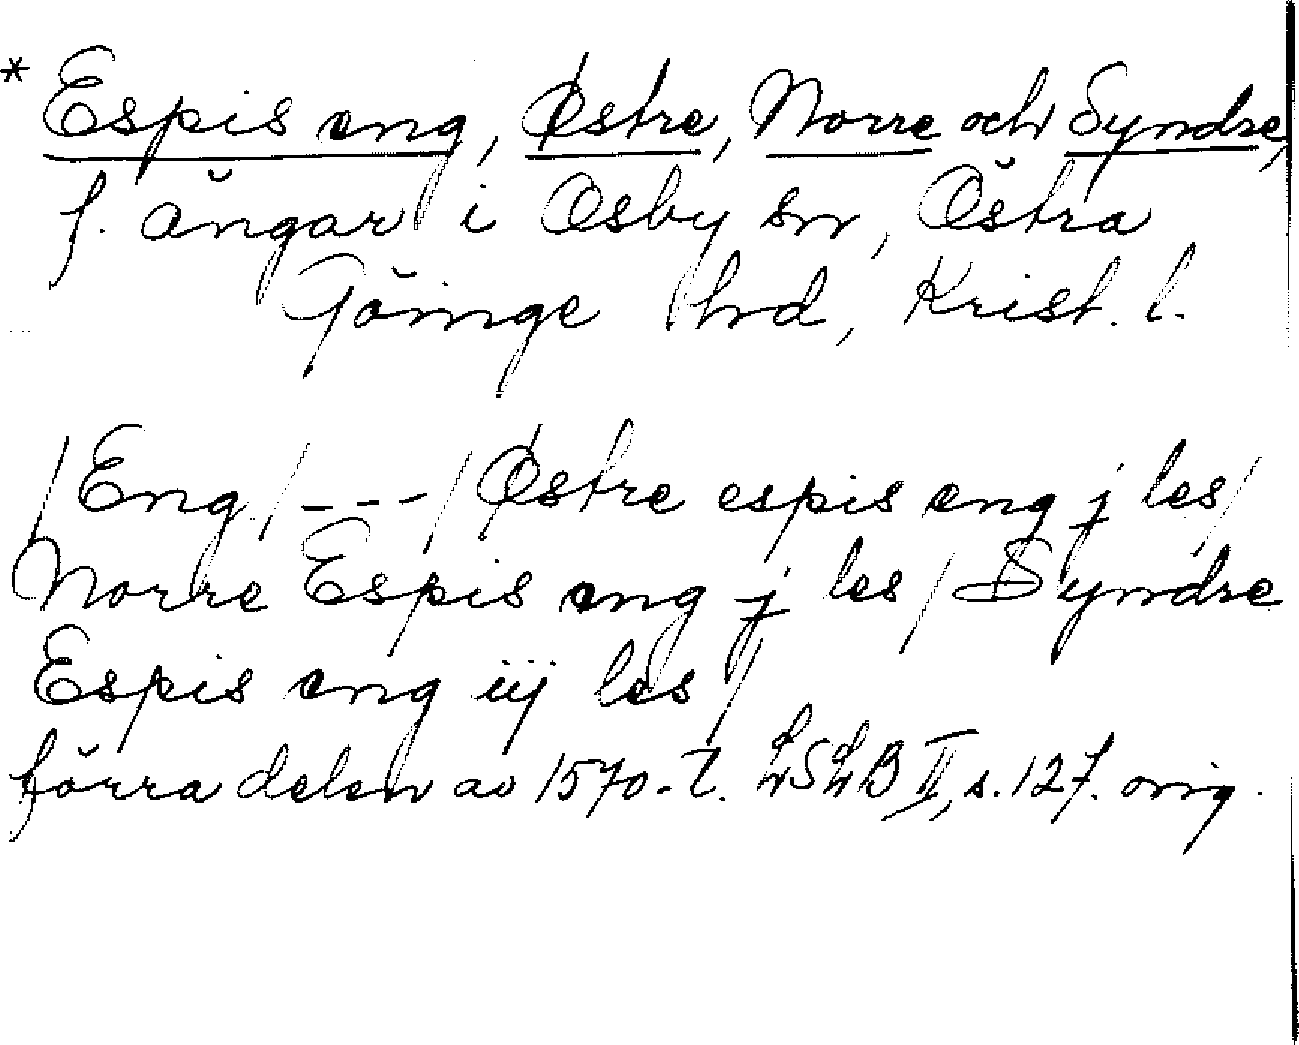 * Espis eng, Østre, Norre och Syndre,
f. ängar i Osby sn, Östra
Göinge hd, Krist. l.
/Eng/---/Østre espis eng j les/
Norre Espis eng j les/Syndre
Espis eng iij les/
förra delen av 1570-t. LSLB II, s. 127. orig.